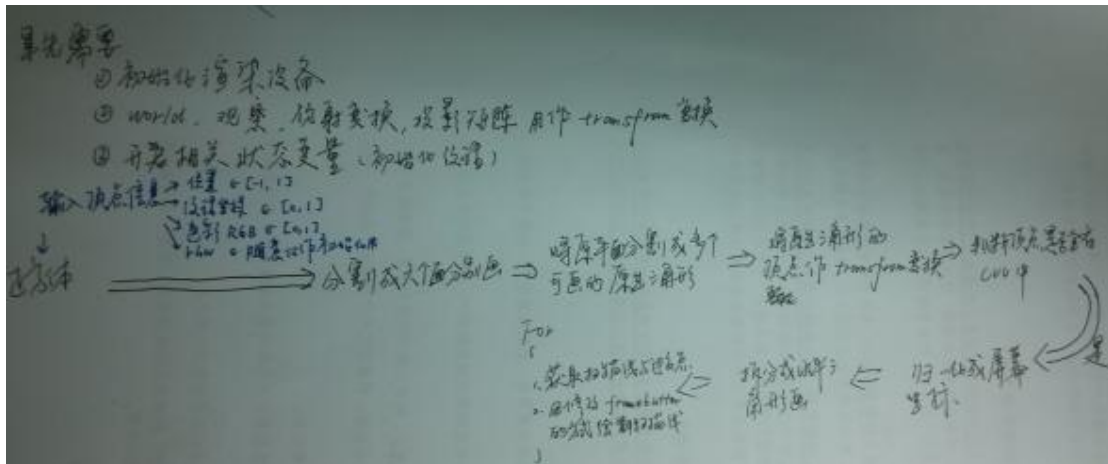 首先需要
① 初始化渲染设备
② world, 观察, 仿射变换, 投影矩阵 用作 transfrom 变换
③ 开启相关状态变量(初始化纹理)
输入顶点信息 → 位置 ∈ [-1, 1]
→ 纹理坐标 ∈ [0,1]
色彩 RGB ∈ [0,1]
rhw ∈
正方体
分割成六个面分别画
将原平面分割成多个
可画的原生三角形
将原生三角形的
顶点作 transfrom 变换
判断顶点是否全在
cvv中
是
归一化成屏幕
坐标
拆分成
三角形画
For
{
1. 获取扫描线与
2. 用修改 framebuffer
的方式绘制扫描线
}